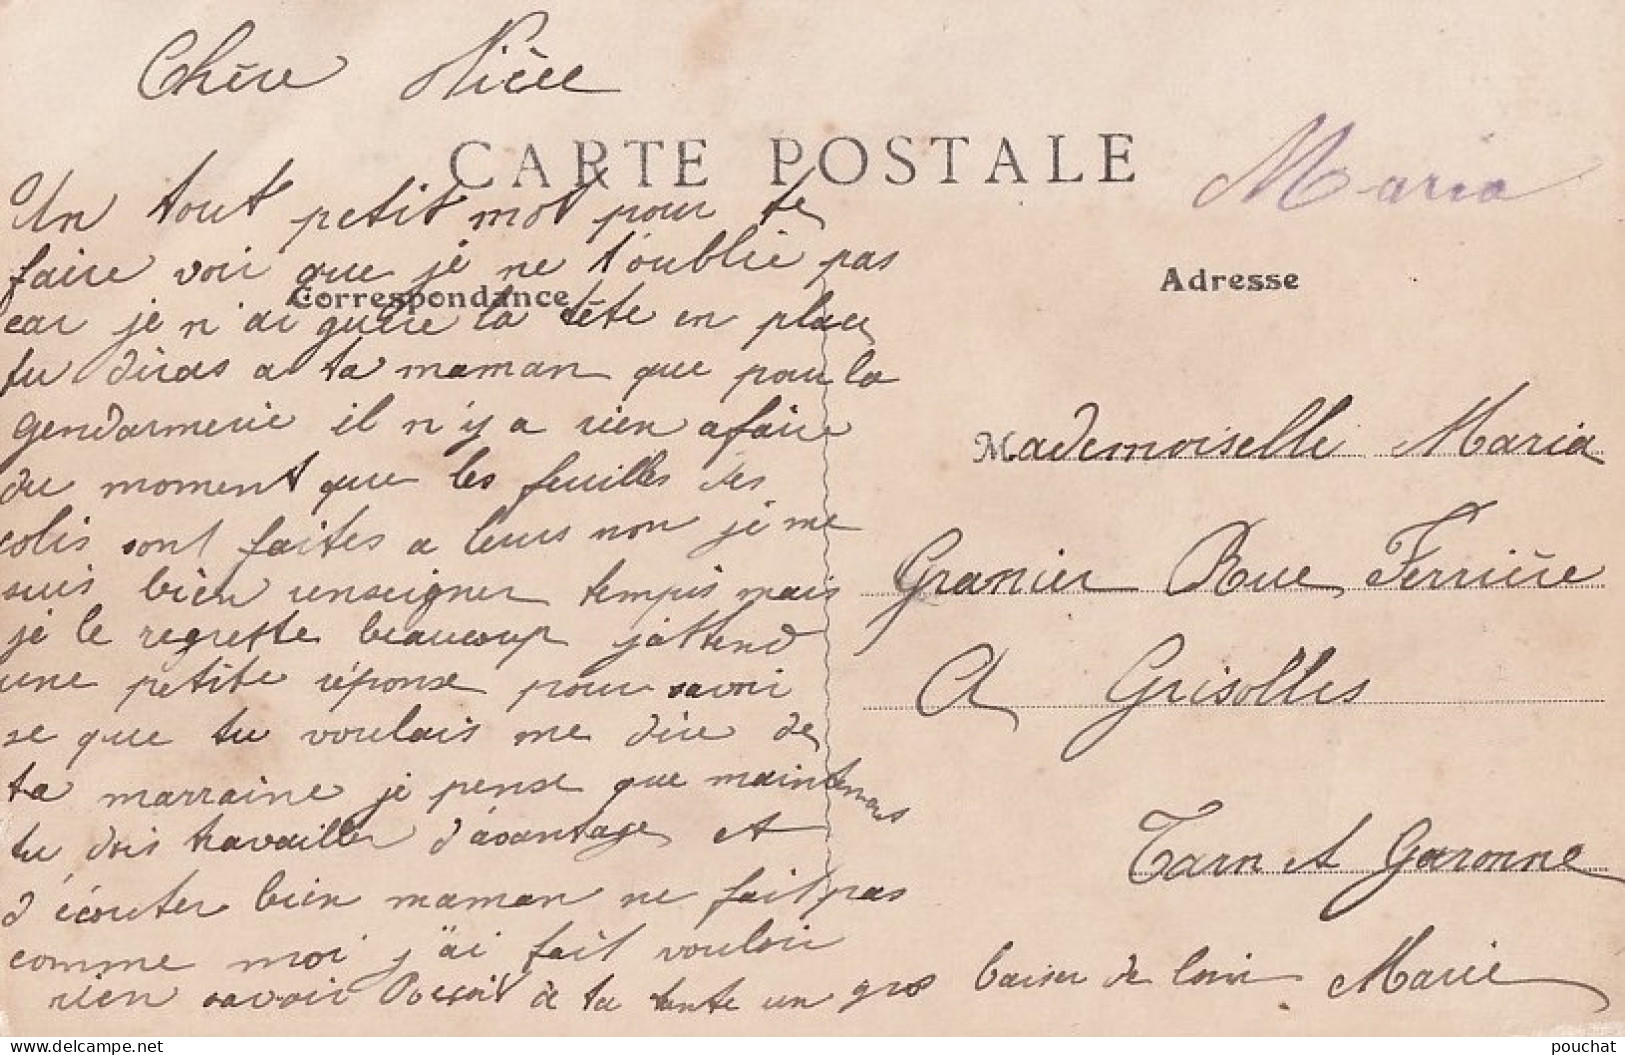 Chère Nièce
CARTE POSTALE
Maria
Un tout petit mot pour te
faire voir que je ne t'oublie pas
Correspondance
car je n'ai guère la tête en place
tu diras a ta maman que pour la
gendarmerie il n'y a rien a faire
du moment que les feuilles des
colis sont faites a leurs non je me
suis bien renseigner tempis mais
je le regrette beaucoup j'attend
une petite réponse pour savoir
se que tu voulais me dire de
ta marraine je pense que maintenant
tu dois travailler d'avantage et
d'écouter bien maman ne fait pas
comme moi j'ai fait vouloir
rien savoir Reçoit de ta tante un gros baiser de loin Marie
Adresse
Mademoiselle Maria
Granier Rue Ferrière
A Grisolles
Tarn et Garonne
delcampe.net
pouchat